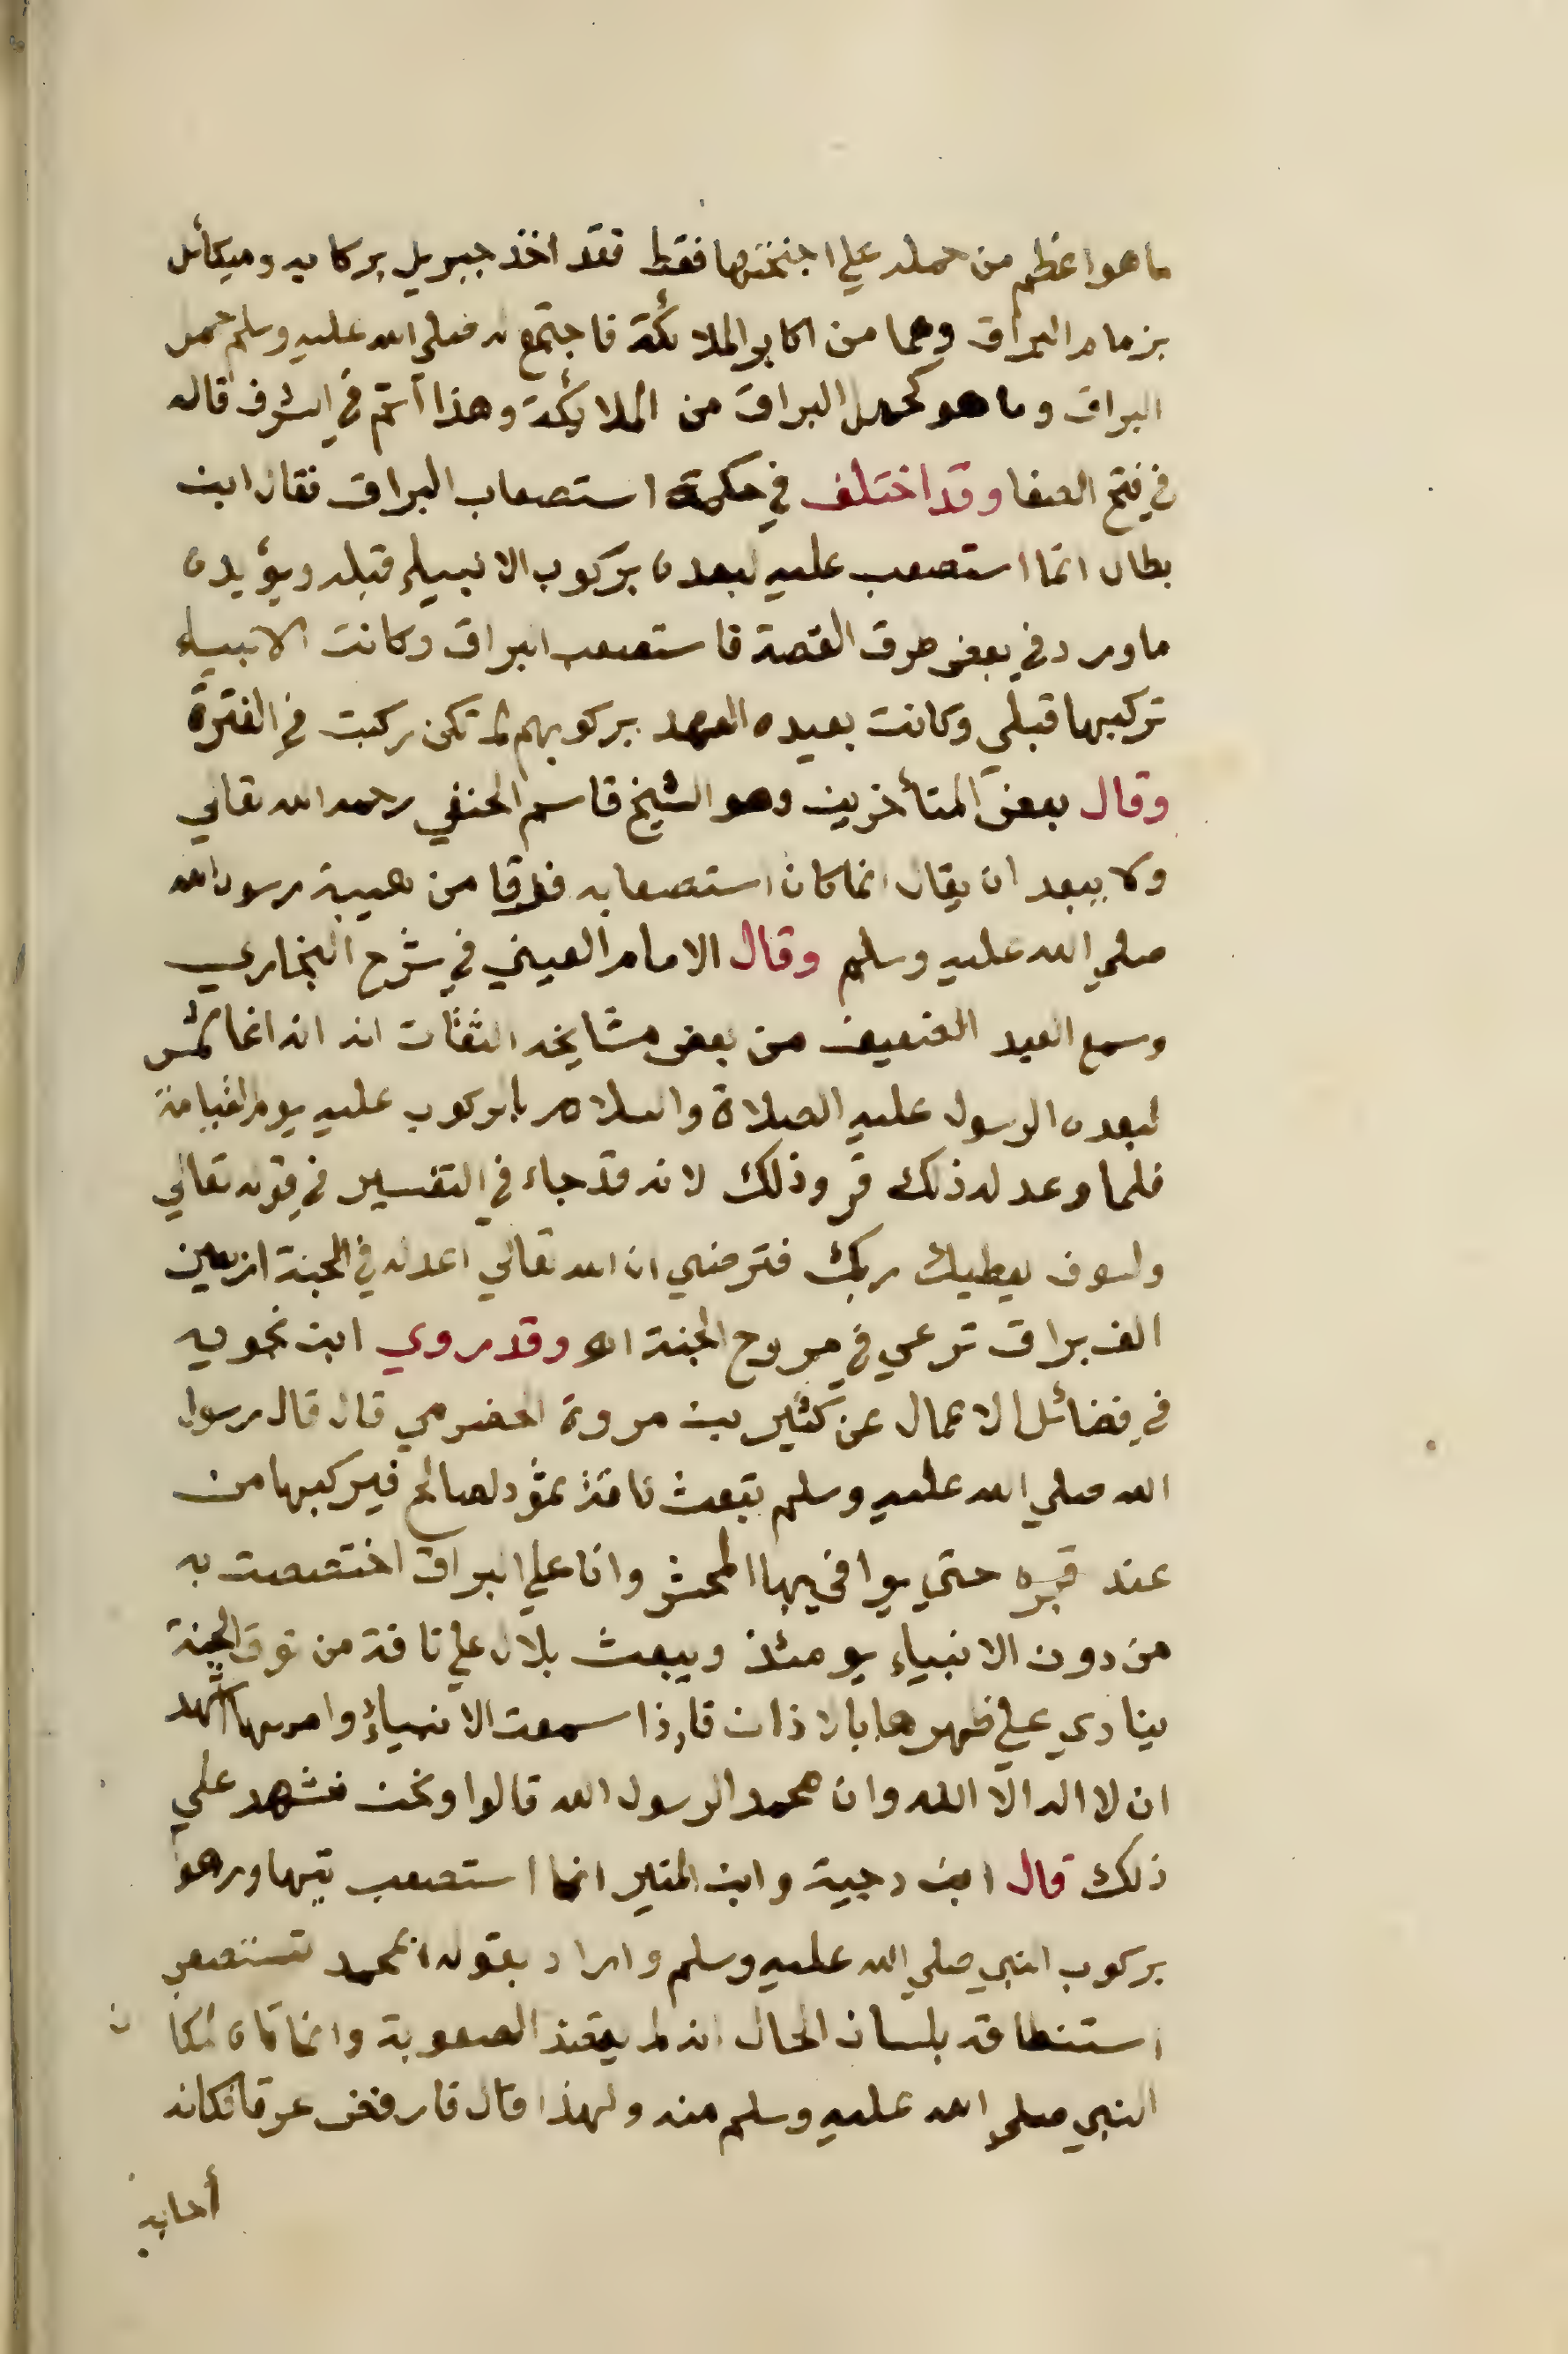 ما هو اعظم من حمله علي اجنحتها فقط فقد اخذ جبريل بركابه وميكائل
بزمام البراق وهما من اكابر الملائكة فاجتمع له صلي الله عليه وسلم حمل
البراق وما هو كحمل البراق من الملائكة وهذا أتم في الشرف قاله
في فتح الصفا وقد اختلف في حكمة استصعاب البراق فقال ابن
بطال انما استصعب عليه لبعده بركوب الانبياء قبله ويؤيده
ما ورد في بعض طرق القصة فاستصعب البراق وكانت الانبياء
تركبها قبلي وكانت بعيده العهد بركوبهم لم تكن ركبت في الفترة
وقال بعض المتأخرين وهو الشيخ قاسم الحنفي رحمه الله تعالي
ولا يبعد ان يقال انما كان استصعابه فرقا من هيبة رسول الله
صلي الله عليه وسلم وقال الامام العيني في شرح البخاري
وسمع العبد الضعيف من بعض مشايخه الثقات انه انه انما شمس
لبعده الرسول عليه الصلاة والسلام بالركوب عليه يوم القيامة
فلما وعد له ذلك قر وذلك لانه قد جاء في التفسير في قوله تعالي
ولسوف يعطيك ربك فترضي ان الله تعالي اعد له في الجنة اربعين
الف براق ترعي في مروج الجنة اه وقد روي ابن نجويه
في فضائل الاعمال عن كثير بن مروة الحضرمي قال قال رسول
الله صلي الله عليه وسلم تبعث ناقة ثمود لصالح فيركبها من
عند قبره حتي يوافي بها المحشر وانا علي البراق اختصصت به
من دون الانبياء يومئذ ويبعث بلال علي ناقة من نوق الجنة
ينادي علي ظهرها بالاذان فاذا سمعت الانبياء وامرها اشهد
ان لا اله الا الله وان محمد الرسول الله قالوا ونحن نشهد علي
ذلك قال ابن دحية وابن المنير انما استصعب تيها وزهوا
بركوب النبي صلي الله عليه وسلم واراد بقوله ابمحمد تستصعب
استنطاقه بلسان الحال انه لم يقصد الصعوبة وانما تاه لمكان
النبي صلي الله عليه وسلم منه ولهذا قال فارفض عرقا فكانه
أجابه